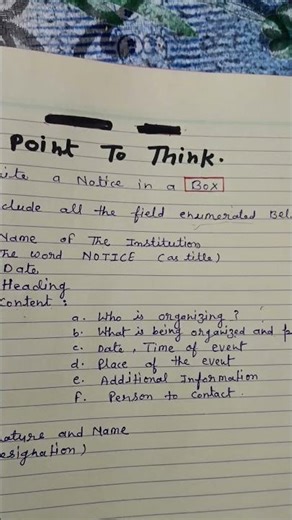 Point To Think.
ite a Notice in a Box
clude all the field enumerated Bel
Name of The Institution
The word NOTICE (as title)
Date
Heading
Content :
a. Who is organizing ?
b. What is being organized and p
c. Date, Time of event
d. Place of the event
e. Additional Information
f. Person to contact.
nature and Name
esignation)